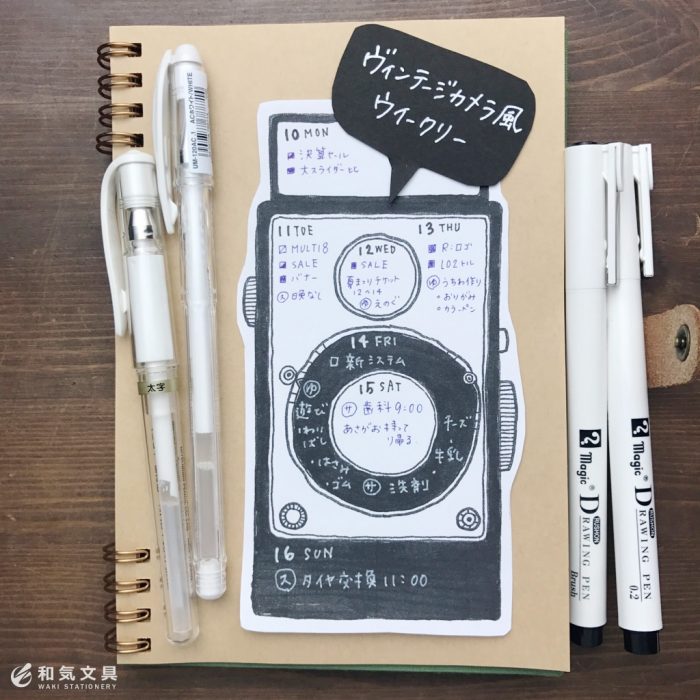 ヴィンテージカメラ風
ウイークリー
10 MON
決算セール
大スライダー比
11 TUE
MULTI8
SALE
バナー
ス 晩なし
12 WED
SALE
夏まつりチケット
12〜14
ゆ えのぐ
13 THU
R:ロゴ
L02トル
ゆ うちわ作り
おりがみ
カラーペン
14 FRI
新システム
ゆ
遊び
わり
ばし
・はさみ
・ゴム
サ 洗剤
チーズ
・牛乳
15 SAT
サ 歯科 9:00
あさがお持って
り帰る
16 SUN
ス タイヤ交換 11:00
UM-120AC .1 ACホワイト/WHITE
太字
Magic
DRAWING PEN
CUSHION
Brush
Magic
DRAWING PEN
CUSHION
0.2
和気文具
WAKI STATIONERY